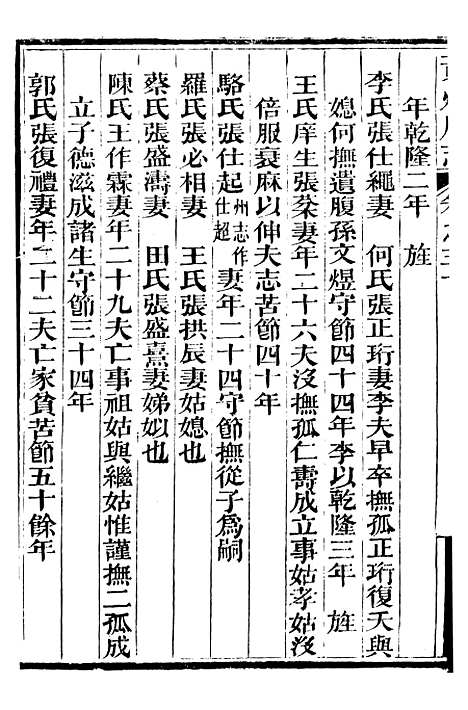 年乾隆二年　旌
李氏張仕繩妻　何氏張正珩妻李夫早卒撫孤正珩復夭與
媳何撫遺腹孫文煜守節四十四年李以乾隆三年　旌
王氏庠生張棻妻年二十六夫沒撫孤仁壽成立事姑孝姑沒
倍服衰麻以伸夫志苦節四十年
駱氏張仕起州志作仕超妻年二十四守節撫從子為嗣
羅氏張必相妻　王氏張拱辰妻姑媳也
蔡氏張盛濤妻　田氏張盛熹妻娣姒也
陳氏王作霖妻年二十九夫亡事祖姑與繼姑惟謹撫二孤成
立子德滋成諸生守節三十四年
郭氏張復禮妻年二十二夫亡家貧苦節五十餘年